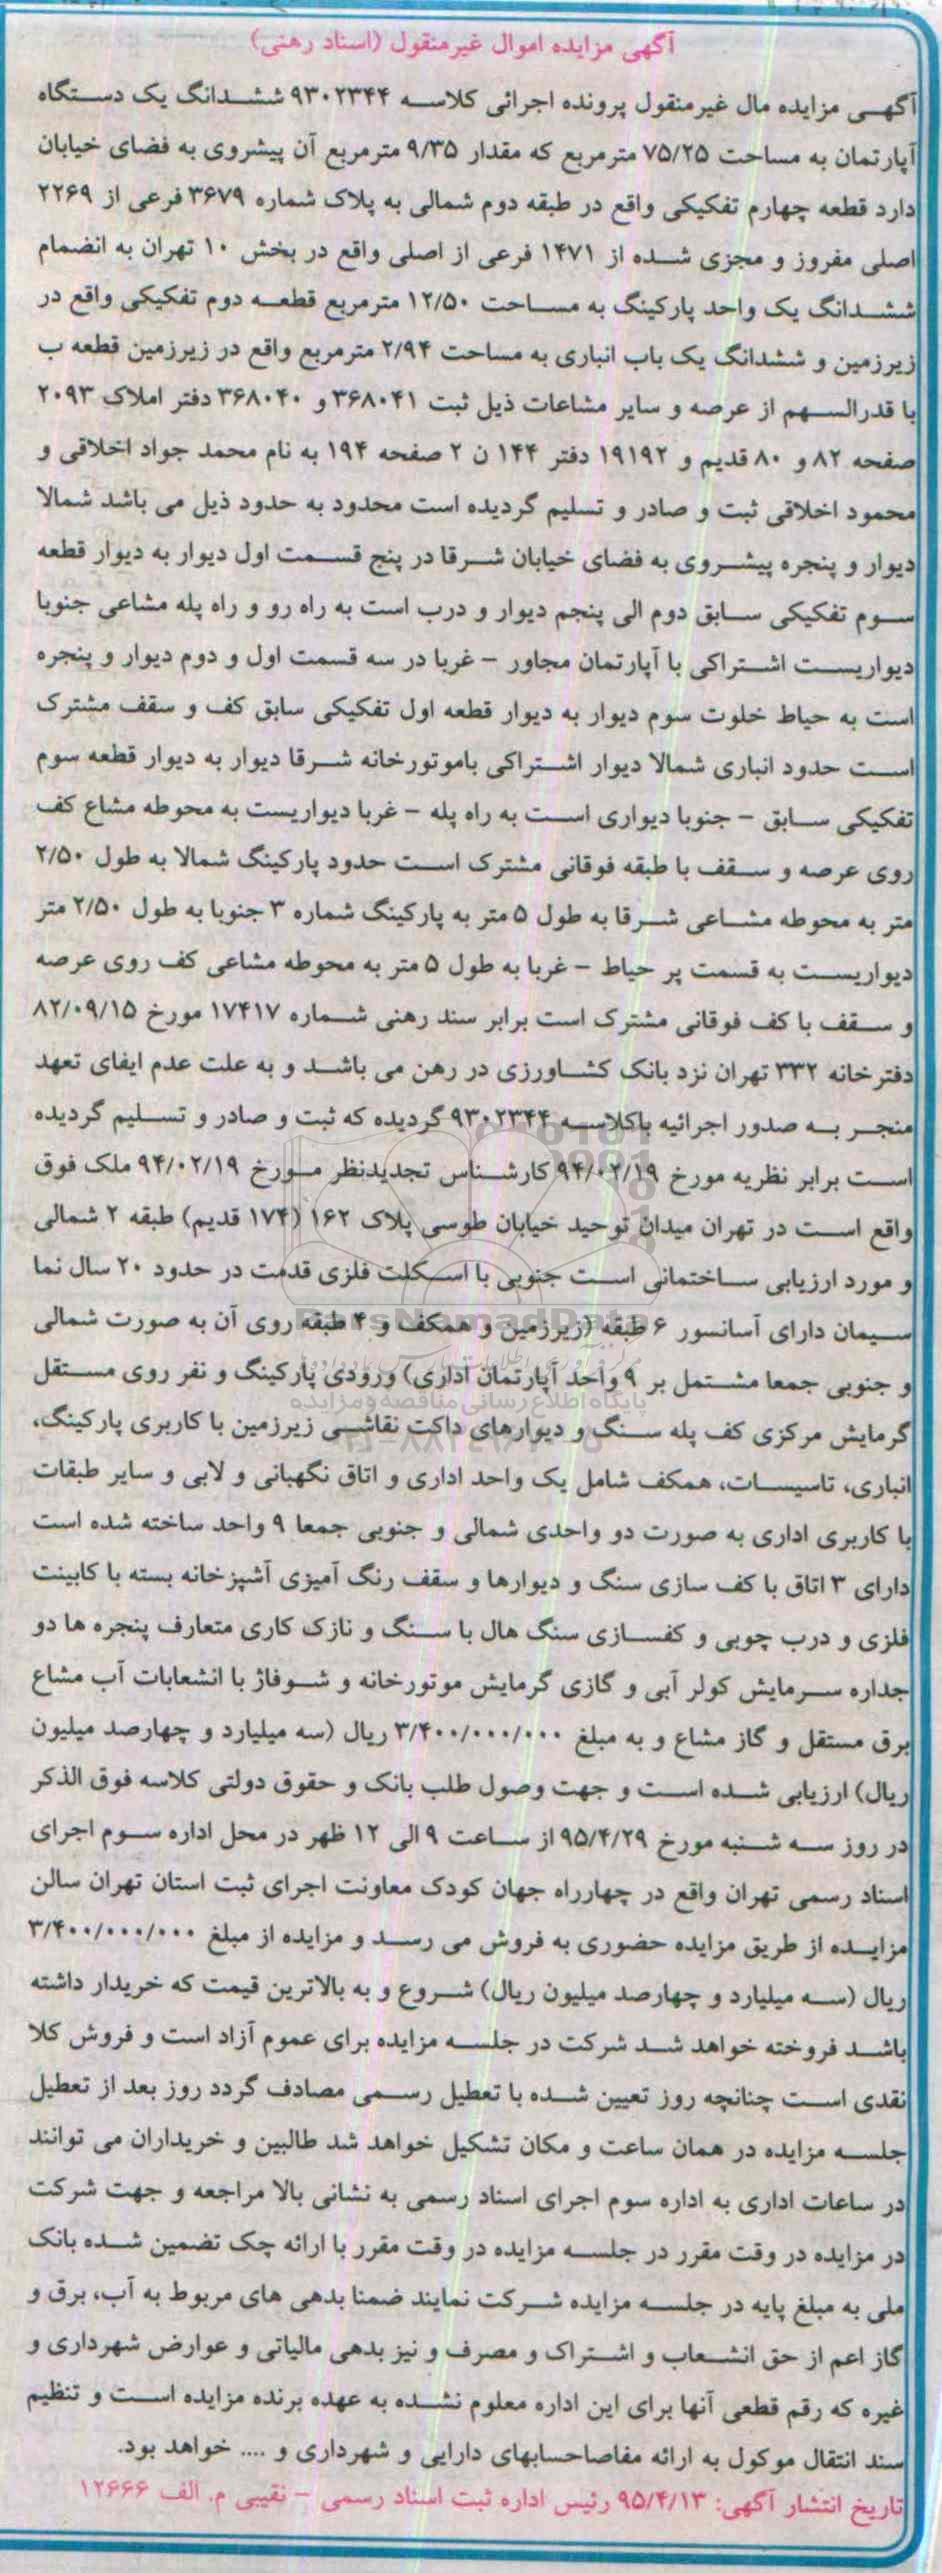 آگهی مزایده اموال غیرمنقول (اسناد رهنی)
آگهی مزایده مال غیرمنقول پرونده اجرائی کلاسه ۹۳۰۲۳۴۴ ششدانگ یک دستگاه
آپارتمان به مساحت ۷۵/۲۵ مترمربع که مقدار ۹/۳۵ مترمربع آن پیشروی به فضای خیابان
دارد قطعه چهارم تفکیکی واقع در طبقه دوم شمالی به پلاک شماره ۳۶۷۹ فرعی از ۲۲۶۹
اصلی مفروز و مجزی شده از ۱۴۷۱ فرعی از اصلی واقع در بخش ۱۰ تهران به انضمام
ششدانگ یک واحد پارکینگ به مساحت ۱۲/۵۰ مترمربع قطعه دوم تفکیکی واقع در
زیرزمین و ششدانگ یک باب انباری به مساحت ۲/۹۴ مترمربع واقع در زیرزمین قطعه ب
با قدرالسهم از عرصه و سایر مشاعات ذیل ثبت ۳۶۸۰۴۱ و ۳۶۸۰۴۰ دفتر املاک ۲۰۹۳
صفحه ۸۲ و ۸۰ قدیم و ۱۹۱۹۲ دفتر ۱۴۴ ن ۲ صفحه ۱۹۴ به نام محمد جواد اخلاقی و
محمود اخلاقی ثبت و صادر و تسلیم گردیده است محدود به حدود ذیل می باشد شمالا
دیوار و پنجره پیشروی به فضای خیابان شرقا در پنج قسمت اول دیوار به دیوار قطعه
سوم تفکیکی سابق دوم الی پنجم دیوار و درب است به راه رو و راه پله مشاعی جنوبا
دیواریست اشتراکی با آپارتمان مجاور - غربا در سه قسمت اول و دوم دیوار و پنجره
است به حیاط خلوت سوم دیوار به دیوار قطعه اول تفکیکی سابق کف و سقف مشترک
است حدود انباری شمالا دیوار اشتراکی باموتورخانه شرقا دیوار به دیوار قطعه سوم
تفکیکی سابق - جنوبا دیواری است به راه پله - غربا دیواریست به محوطه مشاع کف
روی عرصه و سقف با طبقه فوقانی مشترک است حدود پارکینگ شمالا به طول ۲/۵۰
متر به محوطه مشاعی شرقا به طول ۵ متر به پارکینگ شماره ۳ جنوبا به طول ۲/۵۰ متر
دیواریست به قسمت پر حیاط - غربا به طول ۵ متر به محوطه مشاعی کف روی عرصه
و سقف با کف فوقانی مشترک است برابر سند رهنی شماره ۱۷۴۱۷ مورخ ۸۲/۰۹/۱۵
دفترخانه ۳۳۲ تهران نزد بانک کشاورزی در رهن می باشد و به علت عدم ایفای تعهد
منجر به صدور اجرائیه باکلاسه ۹۳۰۲۳۴۴ گردیده که ثبت و صادر و تسلیم گردیده
است برابر نظریه مورخ ۹۴/۰۲/۱۹ کارشناس تجدیدنظر مورخ ۹۴/۰۲/۱۹ ملک فوق
واقع است در تهران میدان توحید خیابان طوسی پلاک ۱۶۲ (۱۷۴ قدیم) طبقه ۲ شمالی
و مورد ارزیابی ساختمانی است جنوبی با اسکلت فلزی قدمت در حدود ۲۰ سال نما
سیمان دارای آسانسور ۶ طبقه (زیرزمین و همکف و ۴ طبقه روی آن به صورت شمالی
و جنوبی جمعا مشتمل بر ۹ واحد آپارتمان اداری) ورودی پارکینگ و نفر روی مستقل
گرمایش مرکزی کف پله سنگ و دیوارهای داکت نقاشی زیرزمین با کاربری پارکینگ،
انباری، تاسیسات، همکف شامل یک واحد اداری و اتاق نگهبانی و لابی و سایر طبقات
با کاربری اداری به صورت دو واحدی شمالی و جنوبی جمعا ۹ واحد ساخته شده است
دارای ۳ اتاق با کف سازی سنگ و دیوارها و سقف رنگ آمیزی آشپزخانه بسته با کابینت
فلزی و درب چوبی و کفسازی سنگ هال با سنگ و نازک کاری متعارف پنجره ها دو
جداره سرمایش کولر آبی و گازی گرمایش موتورخانه و شوفاژ با انشعابات آب مشاع
برق مستقل و گاز مشاع و به مبلغ ۳/۴۰۰/۰۰۰/۰۰۰ ریال (سه میلیارد و چهارصد میلیون
ریال) ارزیابی شده است و جهت وصول طلب بانک و حقوق دولتی کلاسه فوق الذکر
در روز سه شنبه مورخ ۹۵/۴/۲۹ از ساعت ۹ الی ۱۲ ظهر در محل اداره سوم اجرای
اسناد رسمی تهران واقع در چهارراه جهان کودک معاونت اجرای ثبت استان تهران سالن
مزایده از طریق مزایده حضوری به فروش می رسد و مزایده از مبلغ ۳/۴۰۰/۰۰۰/۰۰۰
ریال (سه میلیارد و چهارصد میلیون ریال) شروع و به بالاترین قیمت که خریدار داشته
باشد فروخته خواهد شد شرکت در جلسه مزایده برای عموم آزاد است و فروش کلا
نقدی است چنانچه روز تعیین شده با تعطیل رسمی مصادف گردد روز بعد از تعطیل
جلسه مزایده در همان ساعت و مکان تشکیل خواهد شد طالبین و خریداران می توانند
در ساعات اداری به اداره سوم اجرای اسناد رسمی به نشانی بالا مراجعه و جهت شرکت
در مزایده در وقت مقرر در جلسه مزایده در وقت مقرر با ارائه چک تضمین شده بانک
ملی به مبلغ پایه در جلسه مزایده شرکت نمایند ضمنا بدهی های مربوط به آب، برق و
گاز اعم از حق انشعاب و اشتراک و مصرف و نیز بدهی مالیاتی و عوارض شهرداری و
غیره که رقم قطعی آنها برای این اداره معلوم نشده به عهده برنده مزایده است و تنظیم
سند انتقال موکول به ارائه مفاصاحسابهای دارایی و شهرداری و .... خواهد بود.
تاریخ انتشار آگهی: ۹۵/۴/۱۳ رئیس اداره ثبت اسناد رسمی - نقیبی م. الف ۱۲۶۶۶
ParsNamadData
پایگاه اطلاع رسانی مناقصه و مزایده